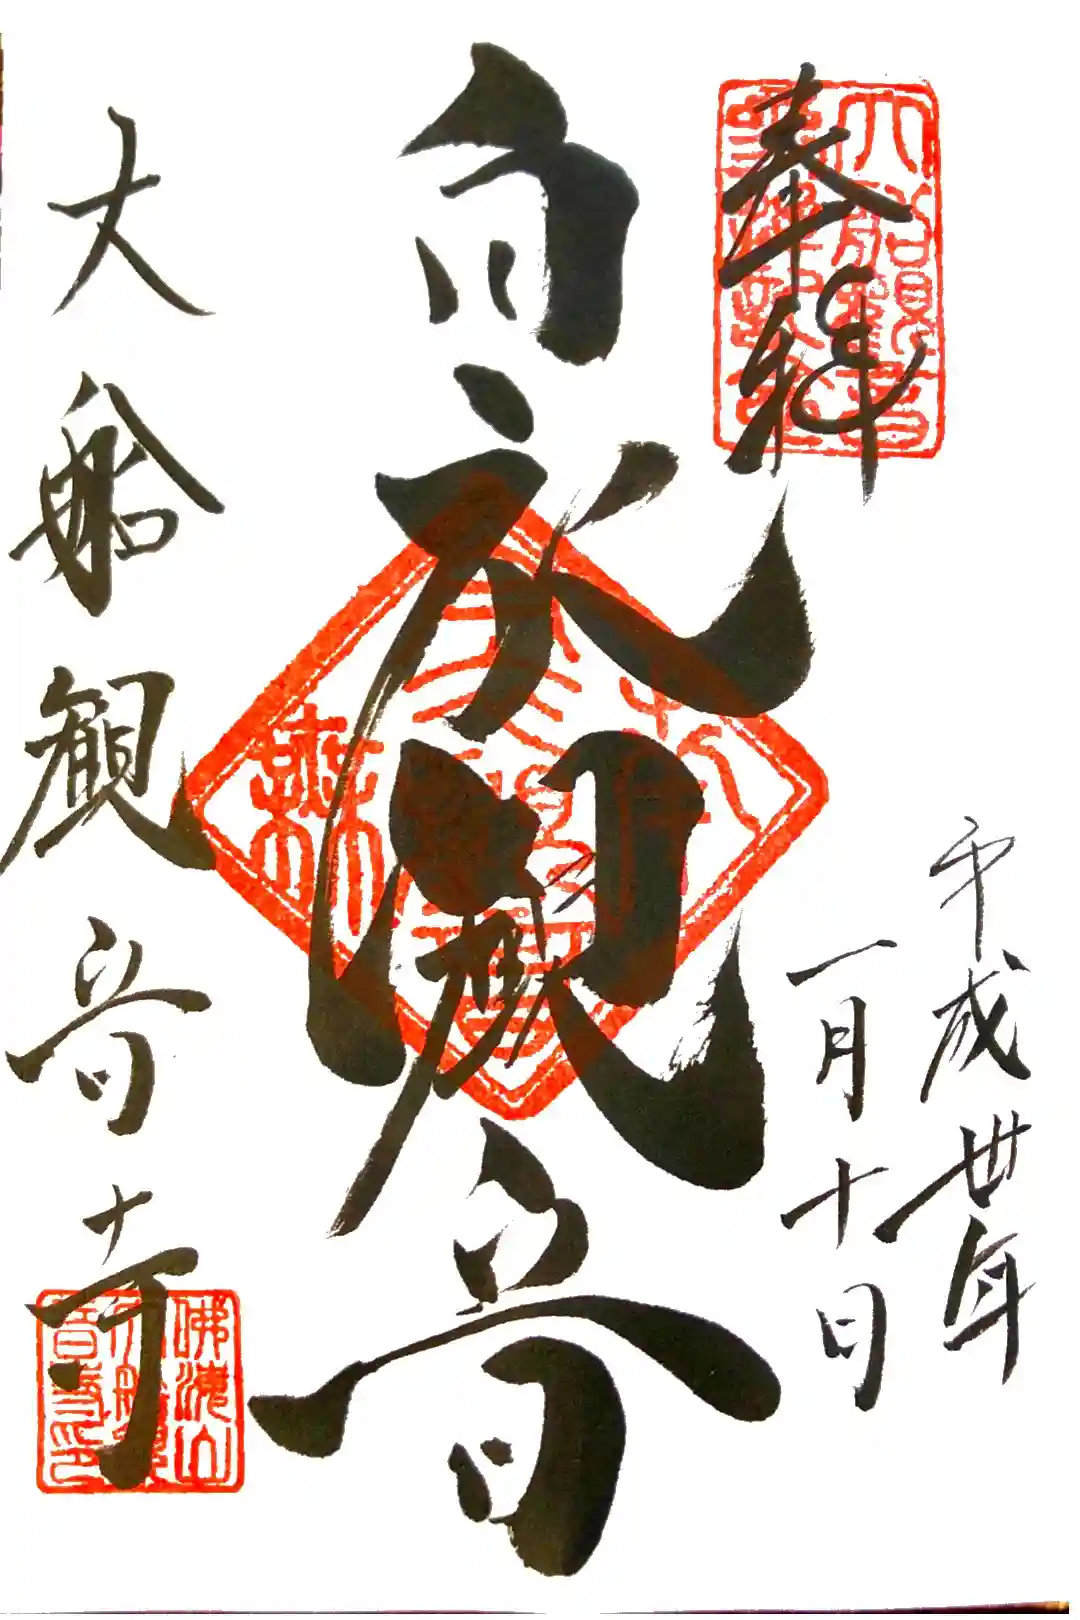 奉拝
平成卅年
一月十日
白衣観音
大船観音寺
佛海山
大船観
音寺印